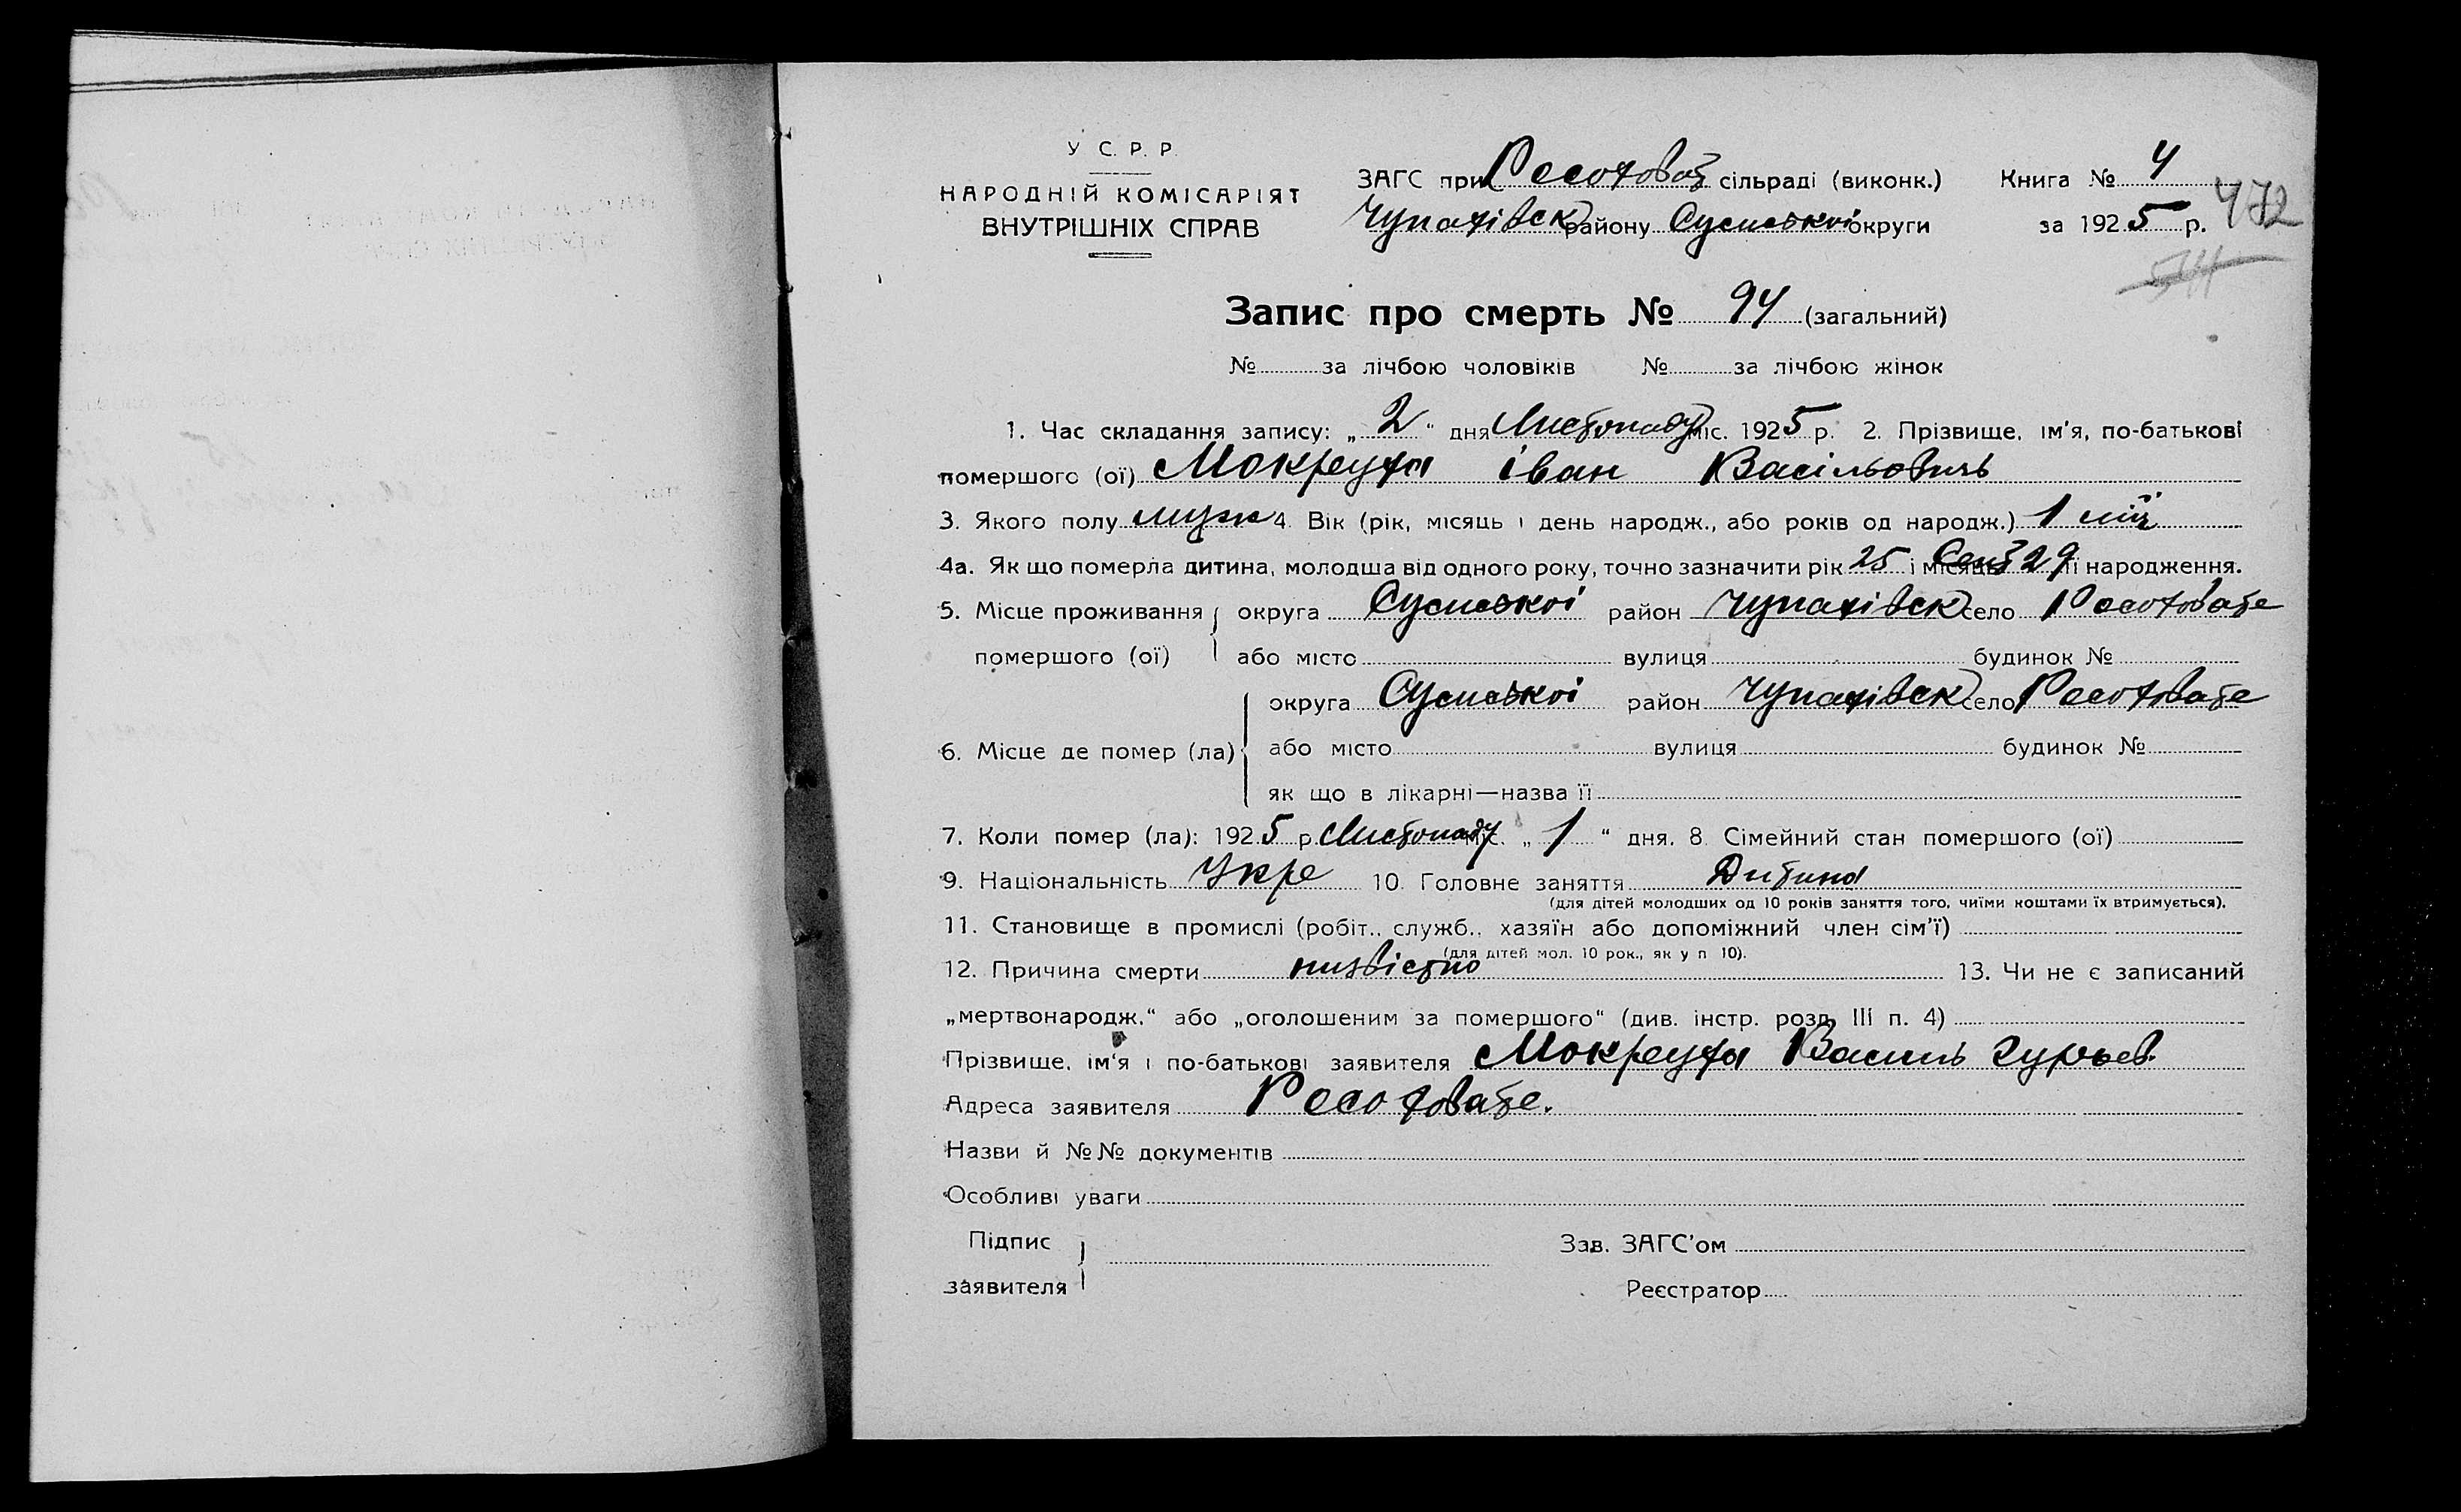 У С. Р. Р.
НАРОДНІЙ КОМІСАРІЯТ
ВНУТРІШНІХ СПРАВ
ЗАГС при Ресотоват сільраді (виконк.) Книга № 4
Чупахівськ району Сумської округи за 1925 р. 472
544
Запис про смерть № 94 (загальний)
№ за лічбою чоловіків № за лічбою жінок
1. Час складання запису: „2“ дня Листопаду міс. 1925 р. 2. Прізвище, ім'я, по-батькові
помершого (ої) Мокреуха іван Васільовичь
3. Якого полу муж 4. Вік (рік, місяць і день народж., або років од народж.) 1 міс
4а. Як що померла дитина, молодша від одного року, точно зазначити рік 25 і місяць Сент 29 її народження.
5. Місце проживання округа Сумськоі район Чупахівськ село Ресотовате
помершого (ої) або місто вулиця будинок №
округа Сумськоі район Чупахівськ село Ресотовате
6. Місце де помер (ла) або місто вулиця будинок №
як що в лікарні—назва її
7. Коли помер (ла): 1925 р. Листопаду міс. „1“ дня. 8. Сімейний стан помершого (ої)
9. Національність Укре 10. Головне заняття Дитина
(для дітей молодших од 10 років заняття того, чиїми коштами їх втримується).
11. Становище в промислі (робіт., служб., хазяїн або допоміжний член сім'ї)
(для дітей мол. 10 рок., як у п 10).
12. Причина смерти низвістно 13. Чи не є записаний
„мертвонародж.“ або „оголошеним за помершого“ (див. інстр. розд. III п. 4)
Прізвище, ім'я і по-батькові заявителя Мокреуха Василь Гурьев.
Адреса заявителя Ресотовате.
Назви й №№ документів
Особливі уваги
Підпис
заявителя
Зав. ЗАГС'ом
Реєстратор